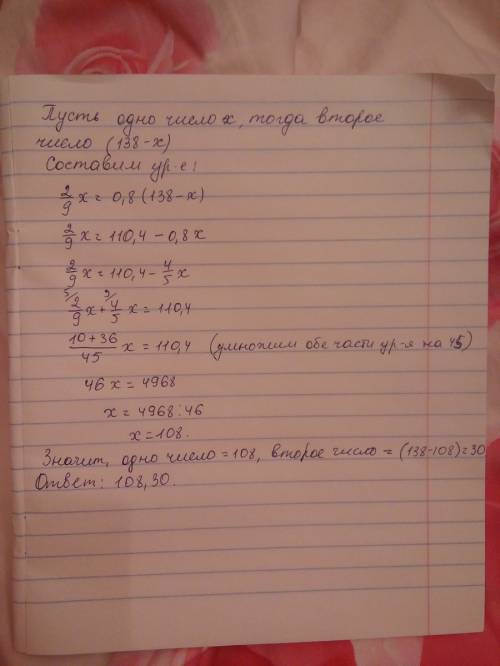 Пусть одно число x, тогда второе
число (138-x)
Составим ур-е:
2/9 x = 0,8 (138-x)
2/9 x = 110,4 - 0,8x
2/9 x = 110,4 - 4/5 x
5/ 2/9 x + 9/ 4/5 x = 110,4
(10+36)/45 x = 110,4 (умножим обе части ур-я на 45)
46x = 4968
x = 4968:46
x = 108.
Значит, одно число = 108, второе число = (138-108) = 30
Ответ: 108, 30.